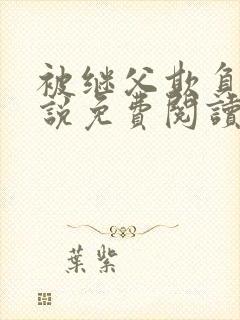 被继父欺负
說免費閱讀
葉紫